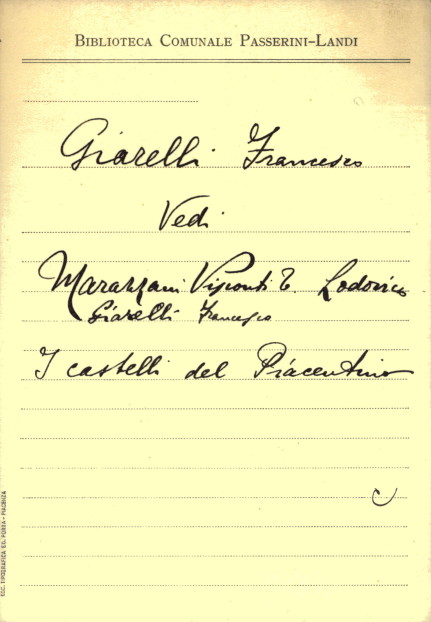 BIBLIOTECA COMUNALE PASSERINI-LANDI
Giarelli Francesco
Vedi
Marazzani Visconti T. Lodovico
Giarelli Francesco
I castelli del Piacentino
C
SOC. TIPOGRAFICA ED. PORTA - PIACENZA